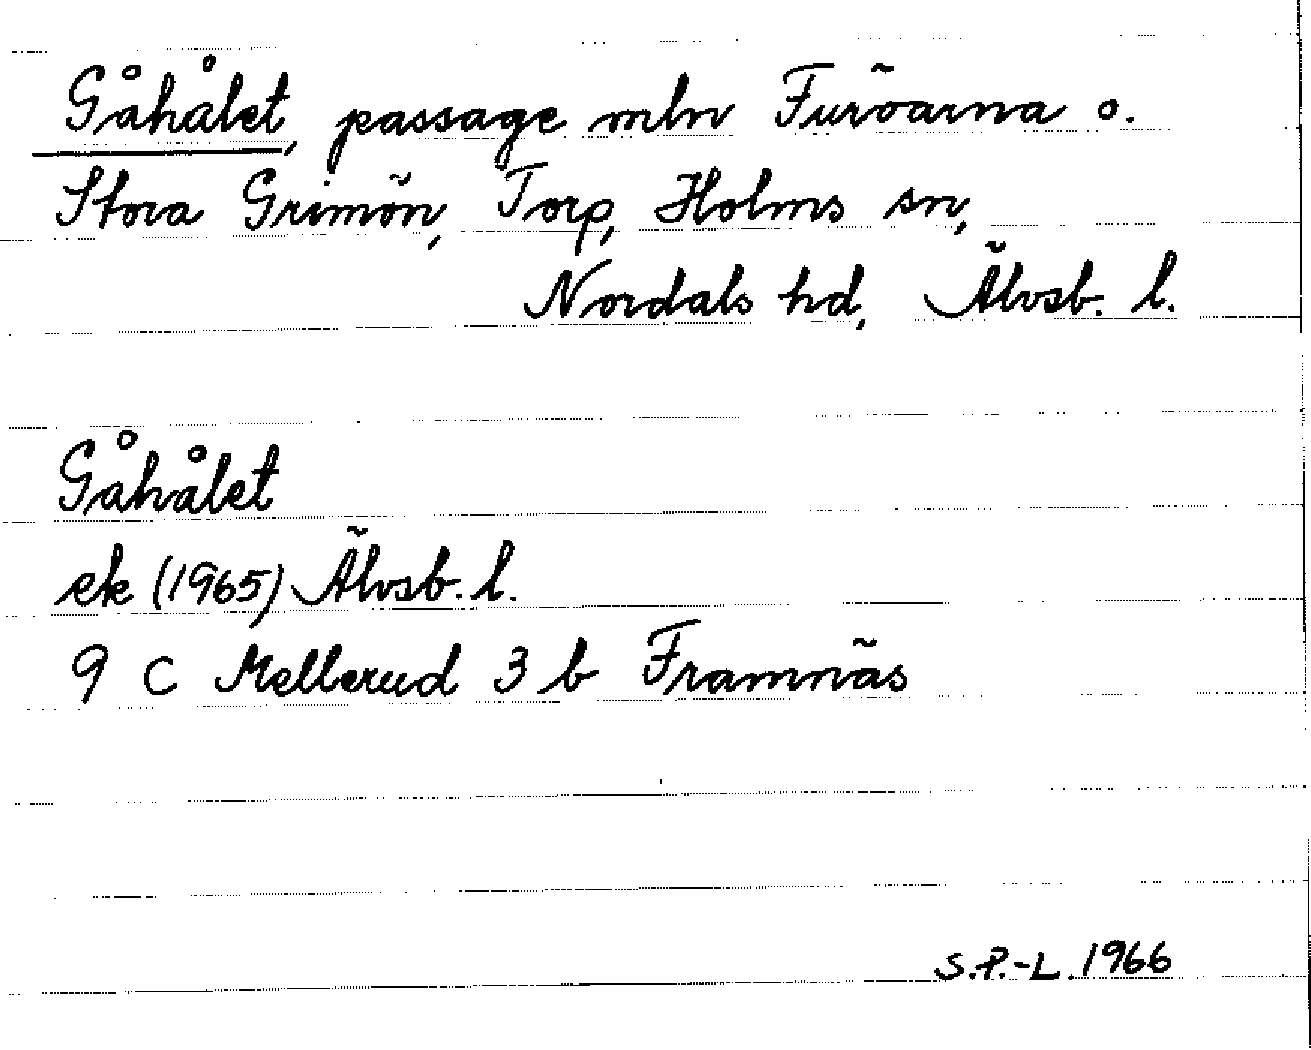 Gåhålet, passage mln Furöarna o.
Stora Grimön, Torp, Holms sn,
Nordals hd, Älvsb. l.
Gåhålet
ek (1965) Älvsb. l.
9 C Mellerud 3 b Framnäs
S.P.-L. 1966